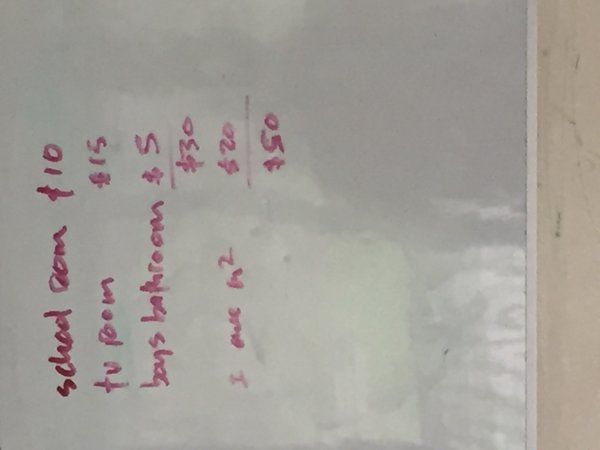 school room $10
tv room $15
boys bathroom $5
$30
I owe $20
$50